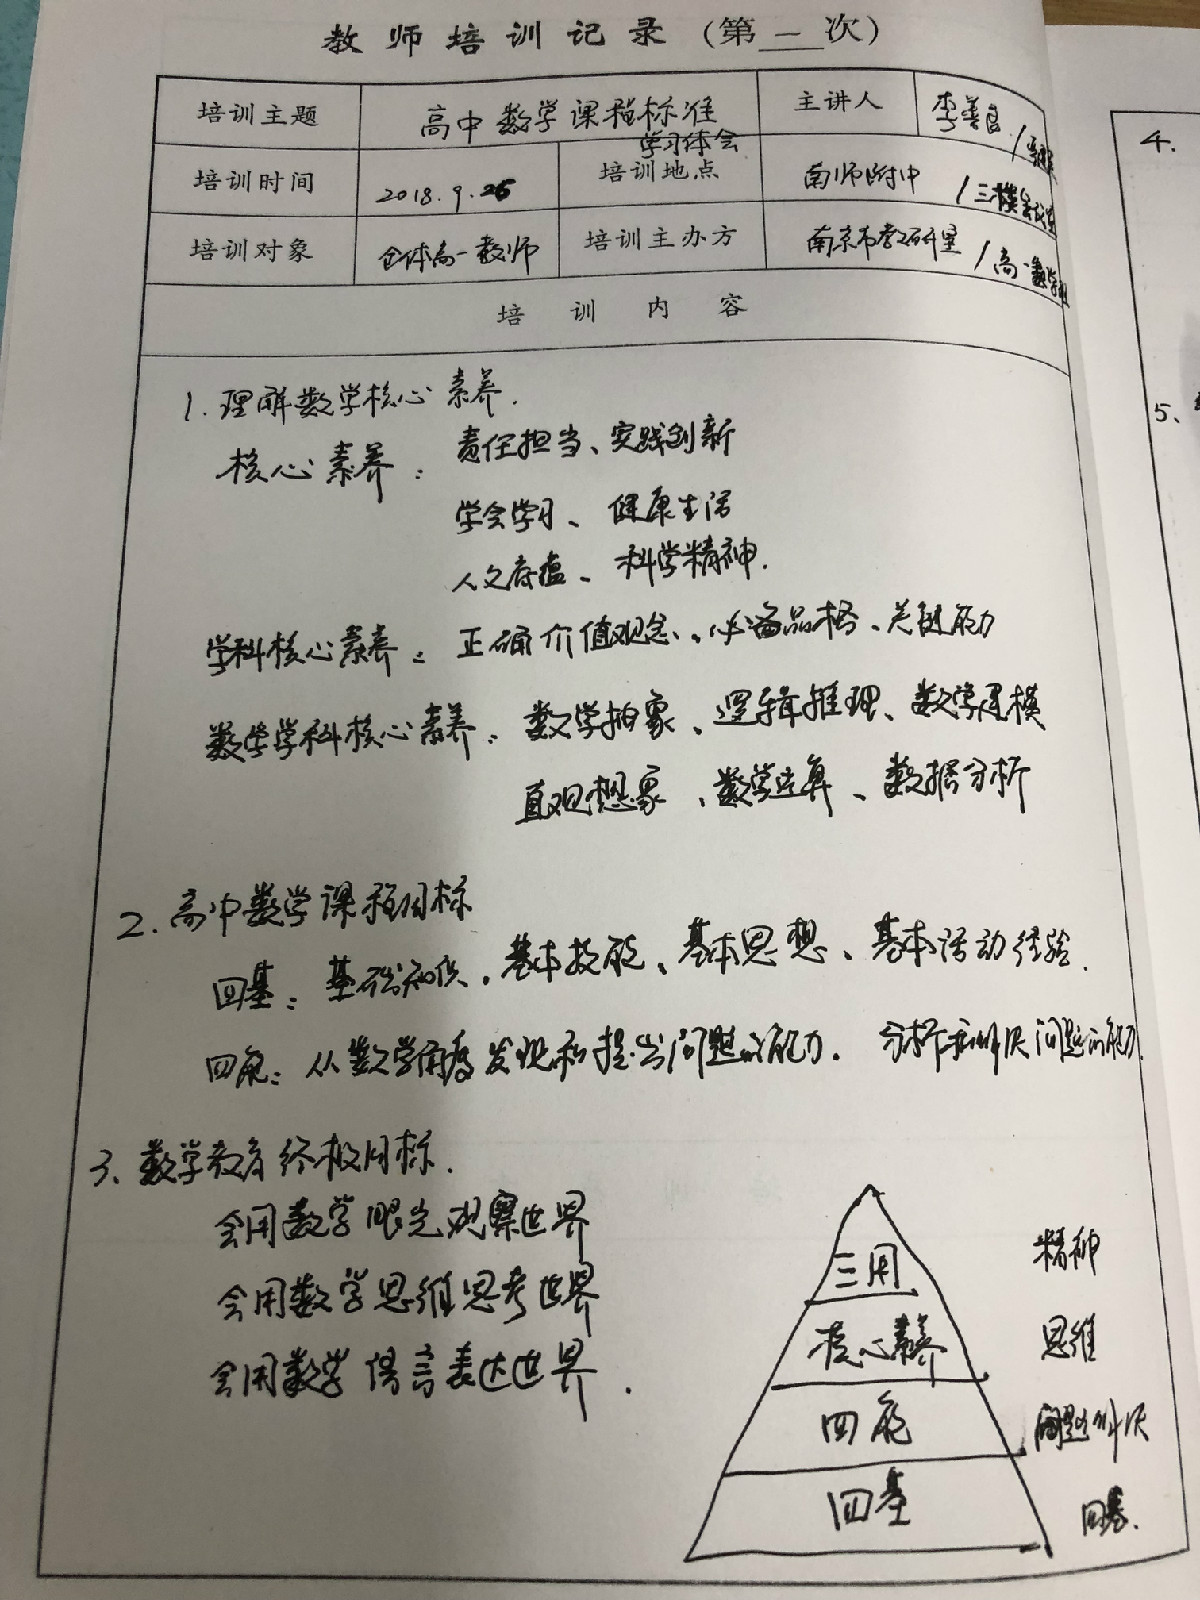 教师培训记录(第一次)
培训主题 高中数学课程标准 主讲人 李善良
学习体会
培训时间 2018.9.25 培训地点 南师附中 /三楼会议室
培训对象 全体高一教师 培训主办方 南京市教研室 /高一数学组
培训内容
1.理解数学核心素养.
核心素养: 责任担当、实践创新
学会学习、健康生活
人文底蕴、科学精神.
学科核心素养: 正确价值观念、必备品格、关键能力
数学学科核心素养: 数学抽象、逻辑推理、数学建模
直观想象、数学运算、数据分析
2.高中数学课程目标
四基: 基础知识、基本技能、基本思想、基本活动经验.
四能: 从数学角度发现和提出问题的能力. 分析和解决问题的能力
3、数学教育终极目标.
会用数学眼光观察世界
会用数学思维思考世界
会用数学语言表达世界.
三用 精神
核心素养 思维
四能 问题解决
四基 四基.
4.
5、